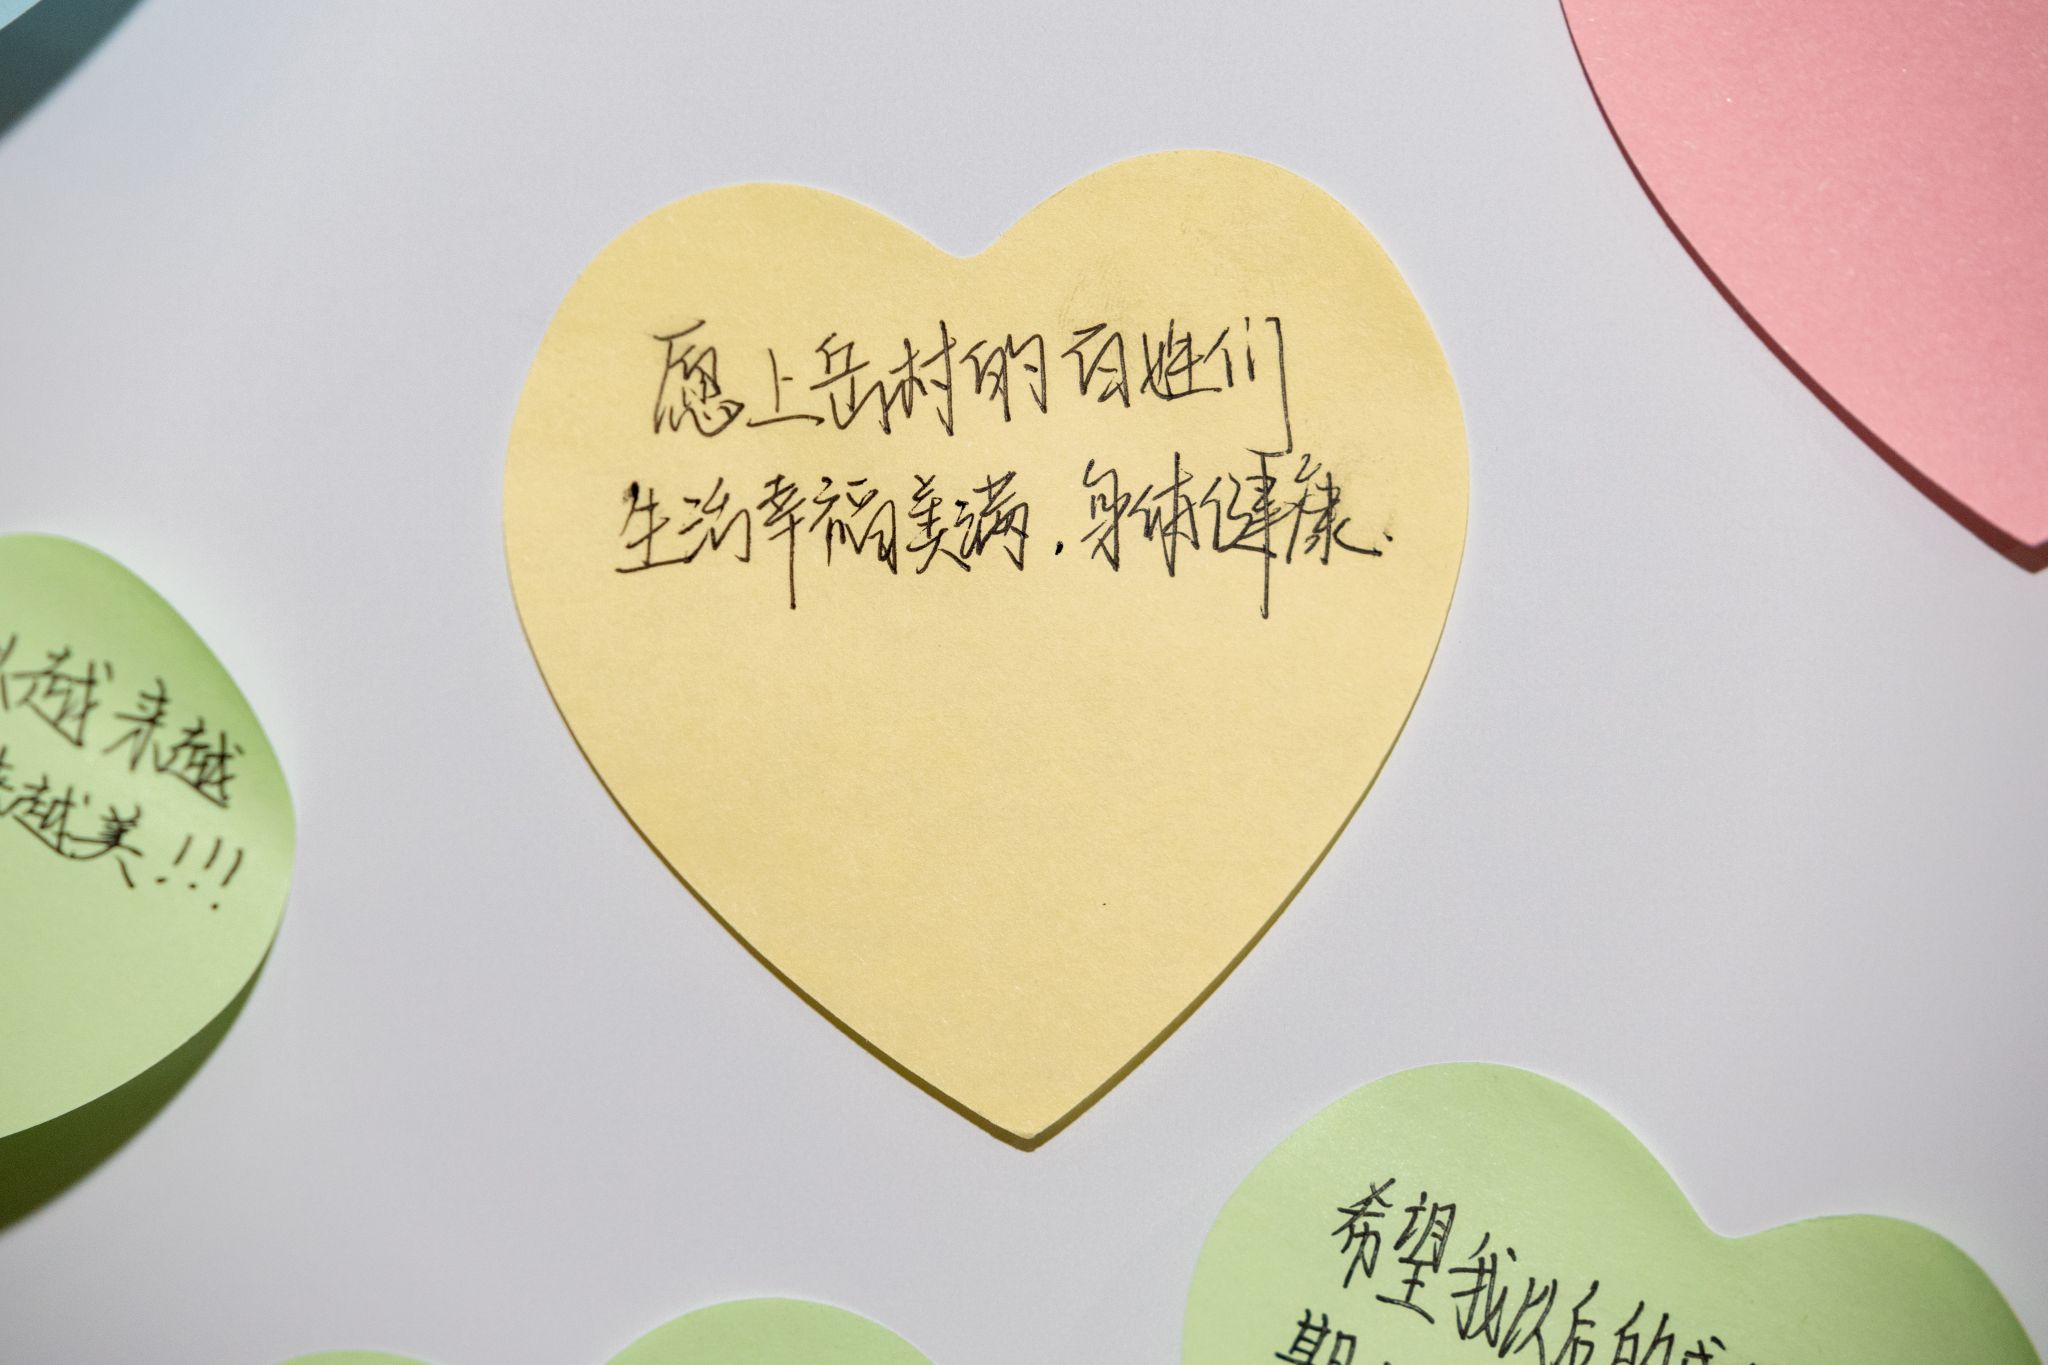 愿上岳村的百姓们
生活幸福美满，身体健康.
以越来越
越美！！！
希望我以后的
期